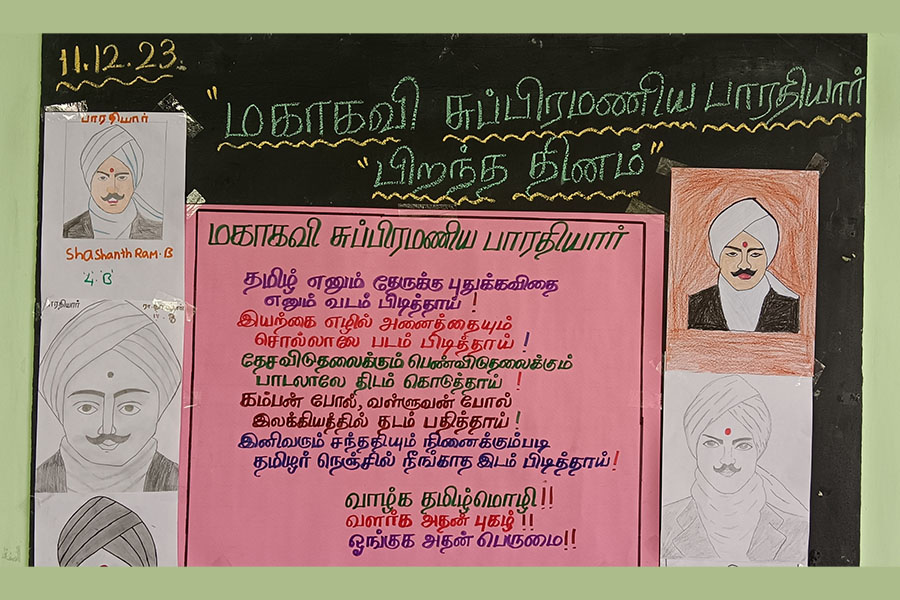 11.12.23.
"மகாகவி சுப்பிரமணிய பாரதியார்
"பிறந்த தினம்"
பாரதியார்
Shashanth Ram.B
4. 'B'
பாரதியார்
மகாகவி சுப்பிரமணிய பாரதியார்
தமிழ் எனும் தேருக்கு புதுக்கவிதை
எனும் வடம் பிடித்தாய் !
இயற்கை எழில் அனைத்தையும்
சொல்லாலே படம் பிடித்தாய் !
தேசவிடுதலைக்கும் பெண்விடுதலைக்கும்
பாடலாலே திடம் கொடுத்தாய் !
கம்பன் போல், வள்ளுவன் போல்
இலக்கியத்தில் தடம் பதித்தாய் !
இனிவரும் சந்ததியும் நினைக்கும்படி
தமிழர் நெஞ்சில் நீங்காத இடம் பிடித்தாய் !
வாழ்க தமிழ்மொழி !!
வளர்க அதன் புகழ் !!
ஓங்குக அதன் பெருமை !!